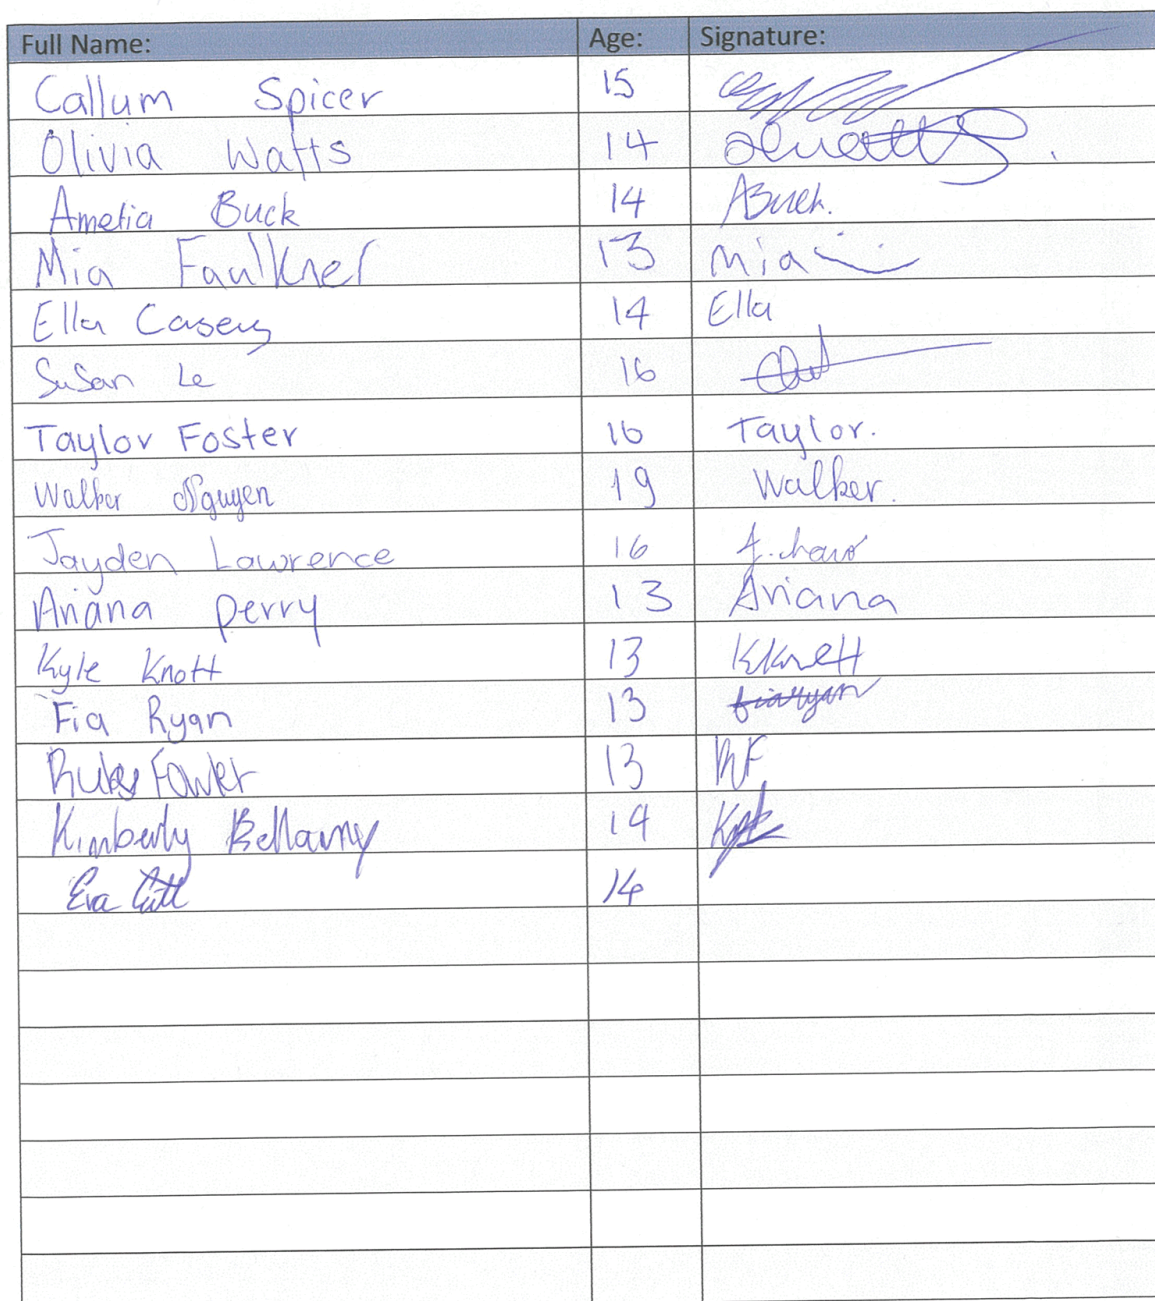 Full Name: Age: Signature:
Callum Spicer 15
Olivia Watts 14
Amelia Buck 14 ABuck.
Mia Faulkner 13 Mia
Ella Casey 14 Ella
Susan Le 16
Taylor Foster 16 Taylor.
Walker Nguyen 19 Walker.
Jayden Lawrence 16
Ariana Perry 13 Ariana
Kyle Knott 13 KKnott
Fia Ryan 13 fiaryan
Ruby Fowler 13 RF
Kimberly Bellamy 14
Eva 14